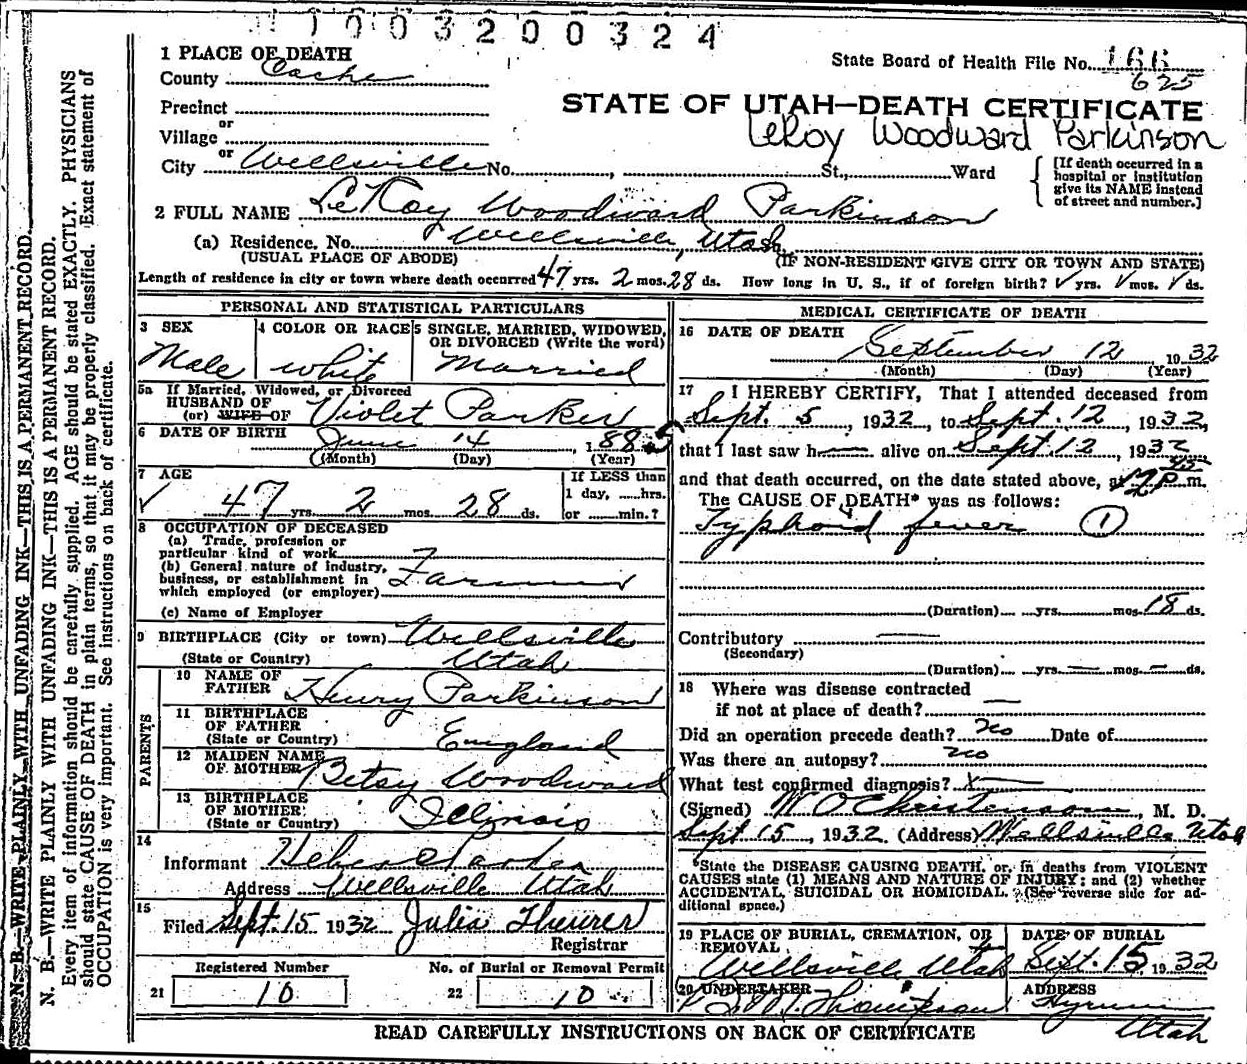 1003200324
1 PLACE OF DEATH
County Cache
State Board of Health File No. 166
625
Precinct
or
Village
or
City Wellsville No. , St., Ward
STATE OF UTAH—DEATH CERTIFICATE
LeRoy Woodward Parkinson
[If death occurred in a
hospital or institution
give its NAME instead
of street and number.]
2 FULL NAME LeRoy Woodward Parkinson
(a) Residence. No. Wellsville, Utah
(USUAL PLACE OF ABODE) (IF NON-RESIDENT GIVE CITY OR TOWN AND STATE)
Length of residence in city or town where death occurred 47 yrs. 2 mos. 28 ds. How long in U. S., if of foreign birth? ✓ yrs. ✓ mos. ✓ ds.
PERSONAL AND STATISTICAL PARTICULARS
3 SEX
Male
4 COLOR OR RACE
white
5 SINGLE, MARRIED, WIDOWED,
OR DIVORCED (Write the word)
Married
5a If Married, Widowed, or Divorced
HUSBAND OF
(or) WIFE OF Violet Parker
6 DATE OF BIRTH June 14, 1885
(Month) (Day) (Year)
7 AGE
✓ 47 yrs. 2 mos. 28 ds.
If LESS than
1 day, ......hrs.
or ......min.?
8 OCCUPATION OF DECEASED
(a) Trade, profession or
particular kind of work
(b) General nature of industry,
business, or establishment in
which employed (or employer)
(c) Name of Employer
9 BIRTHPLACE (City or town) Wellsville
(State or Country) Utah
PARENTS
10 NAME OF
FATHER Henry Parkinson
11 BIRTHPLACE
OF FATHER
(State or Country) England
12 MAIDEN NAME
OF MOTHER Betsy Woodward
13 BIRTHPLACE
OF MOTHER
(State or Country) Illinois
14
Informant Heber
Address Wellsville Utah
15
Filed Sept. 15 1932 Julia Theurer
Registrar
Registered Number
21 10
No. of Burial or Removal Permit
22 10
MEDICAL CERTIFICATE OF DEATH
16 DATE OF DEATH
September 12 1932
(Month) (Day) (Year)
17 I HEREBY CERTIFY, That I attended deceased from
Sept. 5, 1932, to Sept. 12, 1932,
that I last saw h alive on Sept. 12, 1932
and that death occurred, on the date stated above, at P.m.
The CAUSE OF DEATH* was as follows:
Typhoid fever 1
(Duration) yrs. mos. 18 ds.
Contributory —
(Secondary)
(Duration) yrs. — mos. — ds.
18 Where was disease contracted
if not at place of death? —
Did an operation precede death? no Date of
Was there an autopsy? no
What test confirmed diagnosis? x
(Signed) W O Christenson, M. D.
Sept 15, 1932. (Address) Wellsville Utah
*State the DISEASE CAUSING DEATH, or, in deaths from VIOLENT
CAUSES state (1) MEANS AND NATURE OF INJURY; and (2) whether
ACCIDENTAL, SUICIDAL OR HOMICIDAL. (See reverse side for ad-
ditional space.)
19 PLACE OF BURIAL, CREMATION, OR
REMOVAL
Wellsville Utah
DATE OF BURIAL
Sept. 15 1932
20 UNDERTAKER
Thompson
ADDRESS
Hyrum
Utah
READ CAREFULLY INSTRUCTIONS ON BACK OF CERTIFICATE
N. B.—WRITE PLAINLY WITH UNFADING INK—THIS IS A PERMANENT RECORD.
N. B.—WRITE PLAINLY WITH UNFADING INK—THIS IS A PERMANENT RECORD.
Every item of information should be carefully supplied. AGE should be stated EXACTLY. PHYSICIANS
should state CAUSE OF DEATH in plain terms, so that it may be properly classified. Exact statement of
OCCUPATION is very important. See instructions on back of certificate.